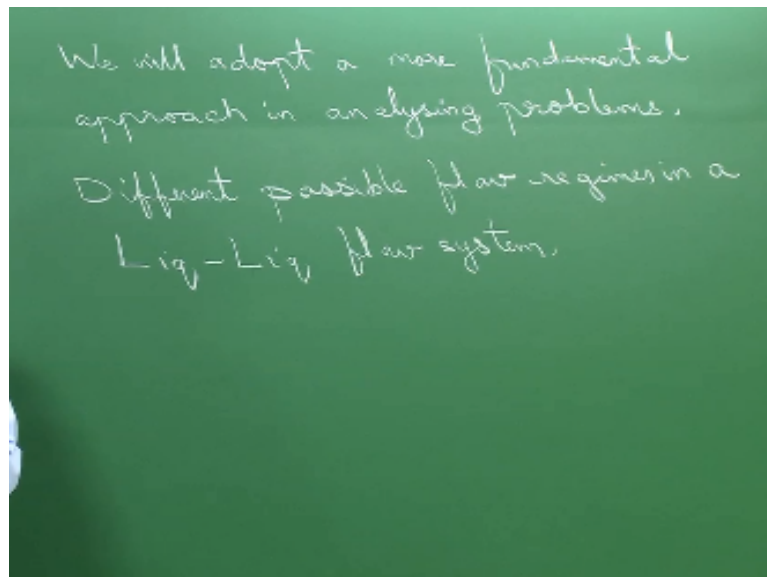 We will adopt a more fundamental
approach in analysing problems.
Different possible flow regimes in a
Liq-Liq flow system.